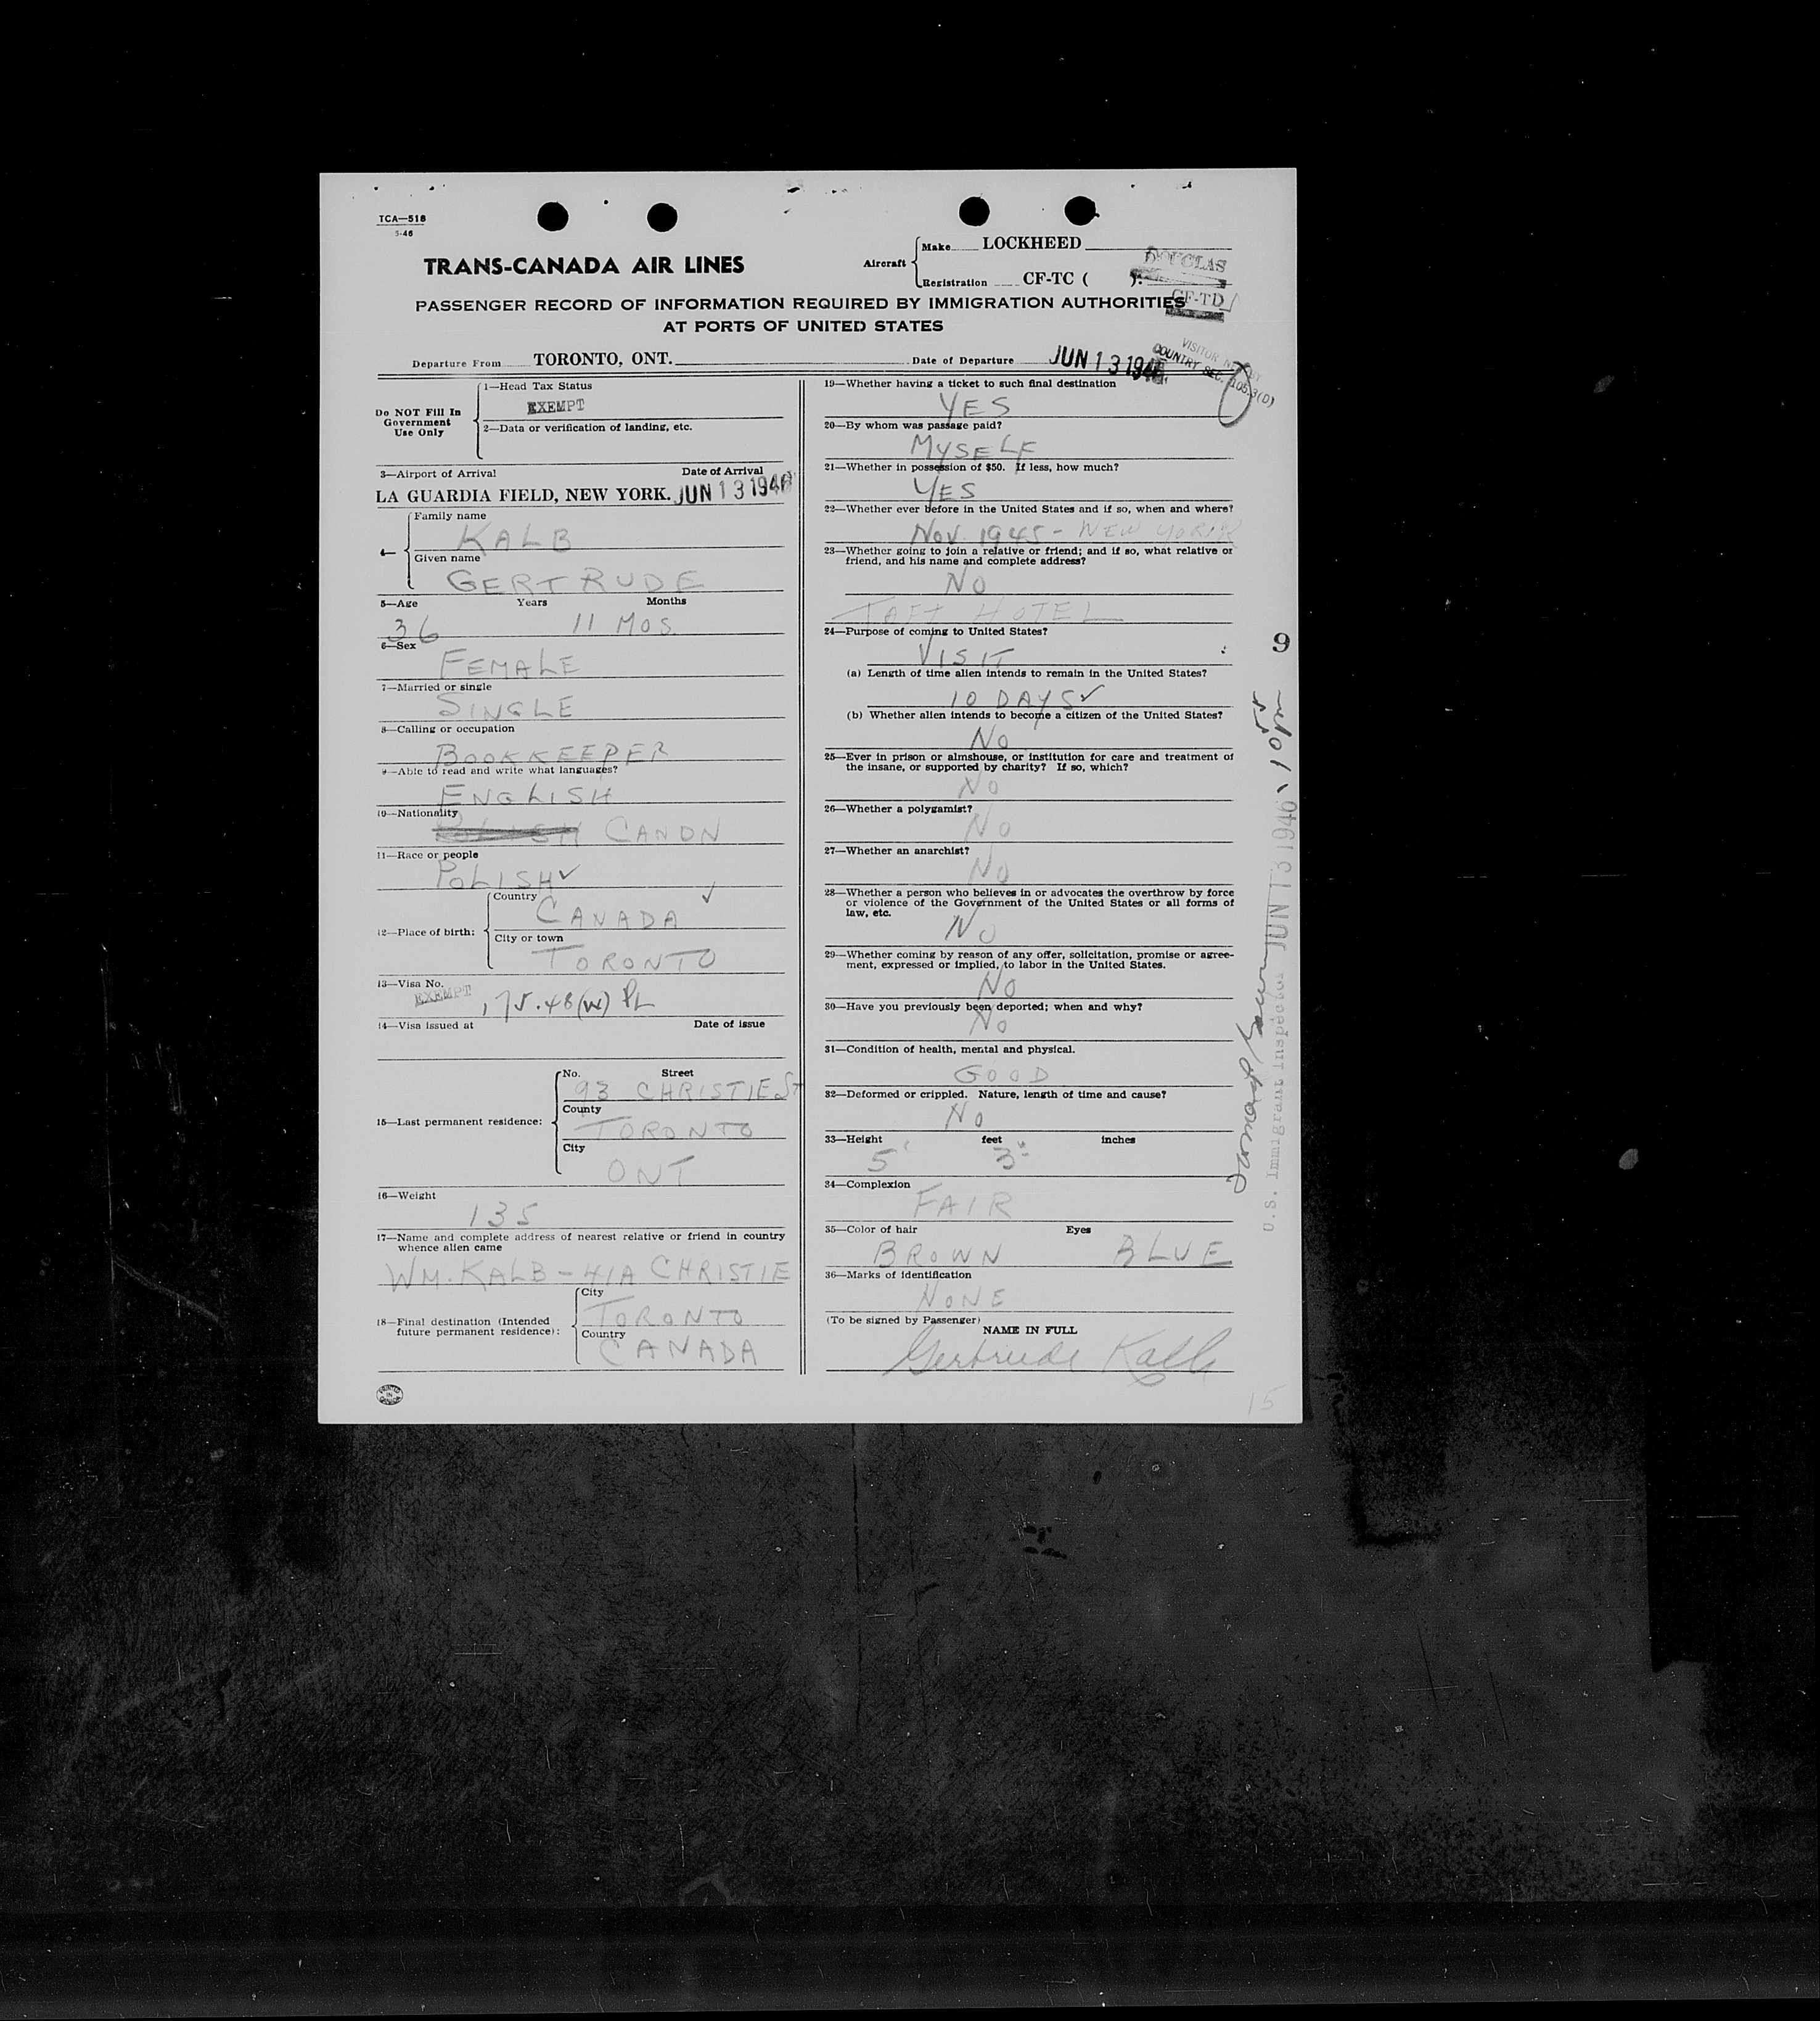 TCA—518
5-46
TRANS-CANADA AIR LINES
Aircraft
Make LOCKHEED
Registration CF-TC ( ).
DOUGLAS
CF-TD
PASSENGER RECORD OF INFORMATION REQUIRED BY IMMIGRATION AUTHORITIES
AT PORTS OF UNITED STATES
Departure From TORONTO, ONT. Date of Departure JUN 13 1946
VISITOR
COUNTRY SEC. 105.3(D)
Do NOT Fill In
Government
Use Only
1—Head Tax Status
EXEMPT
2—Data or verification of landing, etc.
3—Airport of Arrival Date of Arrival
LA GUARDIA FIELD, NEW YORK. JUN 13 1946
4—
Family name
KALB
Given name
GERTRUDE
5—Age Years Months
36 11 MOS.
6—Sex
FEMALE
7—Married or single
SINGLE
8—Calling or occupation
BOOKKEEPER
9—Able to read and write what languages?
ENGLISH
10—Nationality
POLISH CANDN
11—Race or people
POLISH ✓
12—Place of birth:
Country
CANADA ✓
City or town
TORONTO
13—Visa No.
EXEMPT 175.48(w) PL
14—Visa issued at Date of issue
15—Last permanent residence:
No. Street
93 CHRISTIE ST
County
TORONTO
City
ONT
16—Weight
135
17—Name and complete address of nearest relative or friend in country
whence alien came
WM. KALB - 41A CHRISTIE
18—Final destination (Intended
future permanent residence):
City
TORONTO
Country
CANADA
PRINTED
IN
CANADA
19—Whether having a ticket to such final destination
YES
20—By whom was passage paid?
MYSELF
21—Whether in possession of $50. If less, how much?
YES
22—Whether ever before in the United States and if so, when and where?
NOV. 1945 - NEW YORK
23—Whether going to join a relative or friend; and if so, what relative or
friend, and his name and complete address?
NO
TAFT HOTEL
24—Purpose of coming to United States?
VISIT
(a) Length of time alien intends to remain in the United States?
10 DAYS ✓
(b) Whether alien intends to become a citizen of the United States?
NO
25—Ever in prison or almshouse, or institution for care and treatment of
the insane, or supported by charity? If so, which?
NO
26—Whether a polygamist?
NO
27—Whether an anarchist?
NO
28—Whether a person who believes in or advocates the overthrow by force
or violence of the Government of the United States or all forms of
law, etc.
NO
29—Whether coming by reason of any offer, solicitation, promise or agree-
ment, expressed or implied, to labor in the United States.
NO
30—Have you previously been deported; when and why?
NO
31—Condition of health, mental and physical.
GOOD
32—Deformed or crippled. Nature, length of time and cause?
NO
33—Height feet inches
5' 3"
34—Complexion
FAIR
35—Color of hair Eyes
BROWN BLUE
36—Marks of identification
NONE
(To be signed by Passenger)
NAME IN FULL
Gertrude Kalb
15
9
U.S. Immigrant Inspector JUN 13 1946